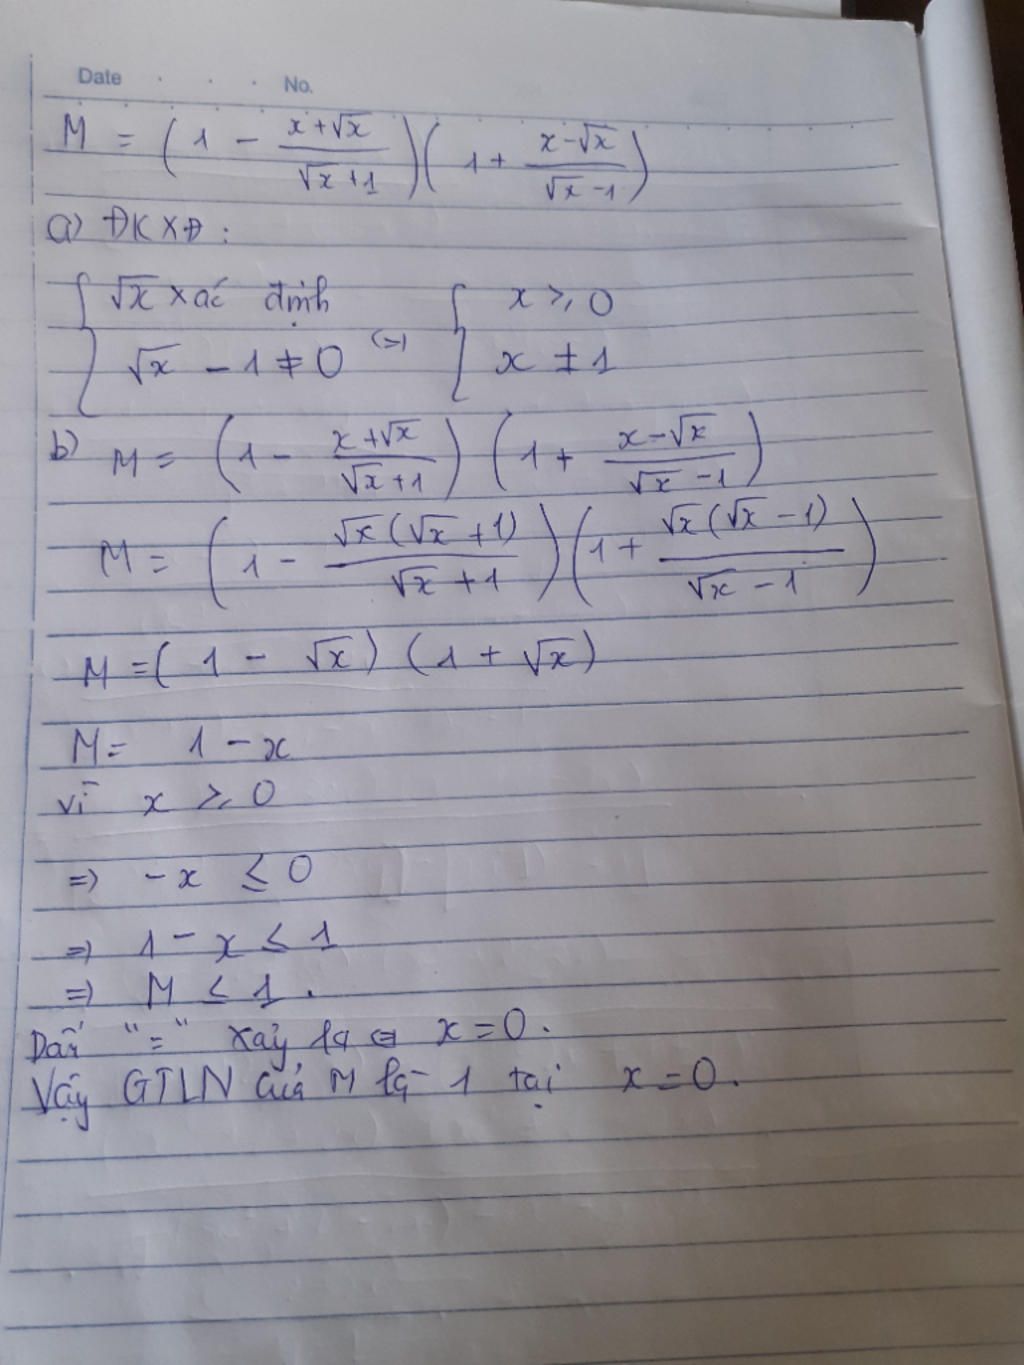 Date . . . No.
M = (1 - \frac{x+\sqrt{x}}{\sqrt{x}+1})(1 + \frac{x-\sqrt{x}}{\sqrt{x}-1})
a) ĐKXĐ:
{ √x xác định <=> { x ≥ 0
{ √x - 1 ≠ 0 { x ≠ 1
b) M = (1 - \frac{x+\sqrt{x}}{\sqrt{x}+1}) (1 + \frac{x-\sqrt{x}}{\sqrt{x}-1})
M = (1 - \frac{\sqrt{x}(\sqrt{x}+1)}{\sqrt{x}+1})(1 + \frac{\sqrt{x}(\sqrt{x}-1)}{\sqrt{x}-1})
M = (1 - √x) (1 + √x)
M = 1 - x
vì x ≥ 0
=> -x ≤ 0
=> 1 - x ≤ 1
=> M ≤ 1.
Dấu "=" xảy ra <=> x = 0.
Vậy GTLN của M là 1 tại x = 0.